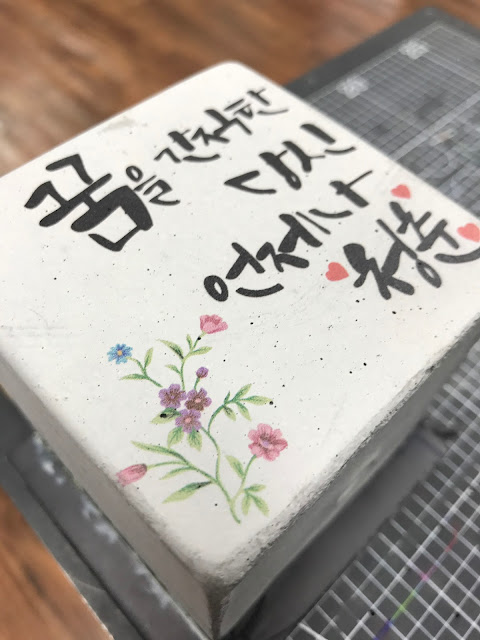 꿈을 간직한
당신
언제나
청춘